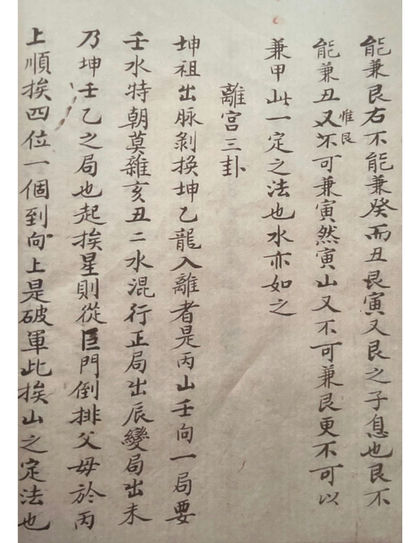 能兼艮右不能兼癸而丑艮寅又艮之子息也艮不
能兼丑又不可兼寅然寅山又不可兼艮更不可以
惟艮
兼甲山此一定之法也水亦如之
離宮三卦
坤祖出脉剝換坤乙龍入離者是丙山壬向一局要
壬水特朝莫雜亥丑二水混行正局出辰變局出未
乃坤壬乙之局也起挨星則從巨門倒排父母於丙
上順挨四位一個到向上是破軍此挨山之定法也